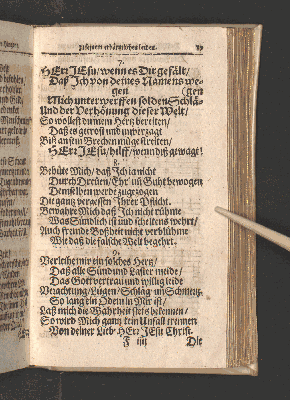 zu seinem erbärmlichen leiden.
7.
HErr JEsu/ wenn es Dir gefält/
Daß Ich von deines Namens we-
gen (gen
Mich unterwerffen sol den Schlä-
Und der Verhönung dieser Welt/
So wollest du mein Hertz bereiten/
Daß es getrost und unverzagt
Biß an sein Brechen müge streiten/
HErr JEsu/ hilff/ wenn diß gewagt!
8.
Behüte Mich/ daß Ich ja nicht
Durch Dreuen/ Ehr' uñ Guht bewogen
Demselben werde zugezogen
Die ganz vergessen Ihrer Pflicht.
Bewahre Mich daß Ich nicht rühme
Was Sündlich ist und scheltens wehrt/
Auch fremde Boßheit nicht verblühme
Wie daß die falsche Welt begehrt.
9.
Verleihe mir ein solches Hertz/
Daß alle Sünd und Laster meide/
Das Gott vertrau und willig leide
Verachtung/ Lügen/ Schläg' uñ Schmertz.
So lang ein Odem in Mir ist/
Laß mich die Wahrheit stets bekennen/
So wird Mich ganz kein Unfall trennen
Von deiner Lieb' HErr JEsu Christ.
F iiij Die